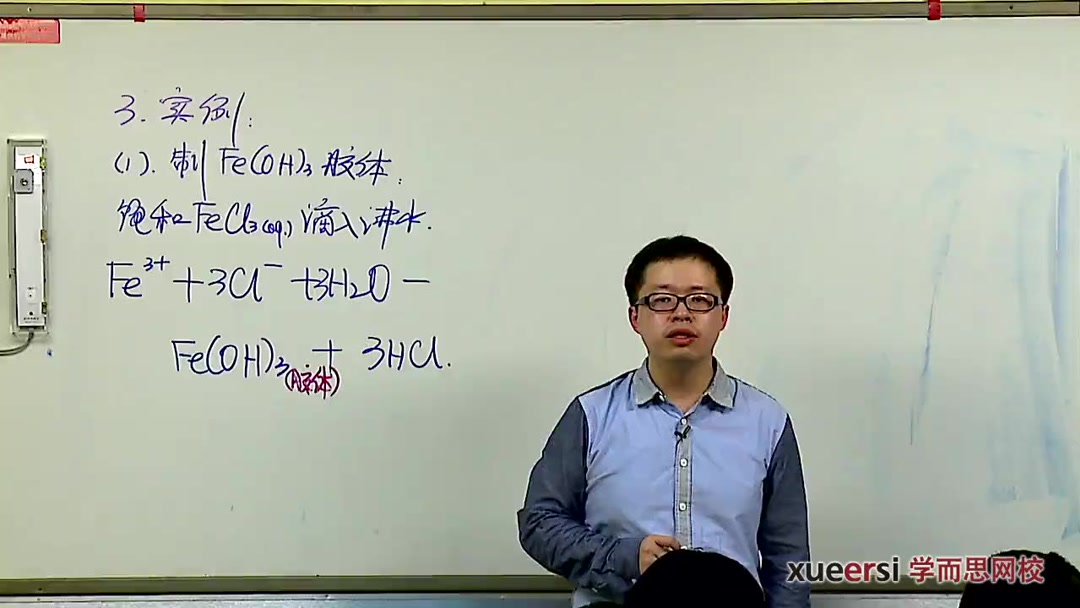 3. 实例:
(1). 制 Fe(OH)₃ 胶体:
饱和 FeCl₃(aq.) 滴入沸水.
Fe³⁺ + 3Cl⁻ + 3H₂O —
Fe(OH)₃(胶体) + 3HCl.
xueersi 学而思网校